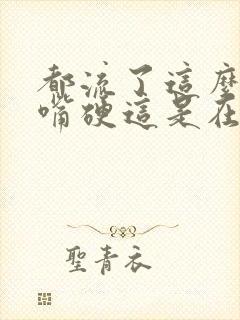 都流了這麼
嘴硬這是在
聖青衣